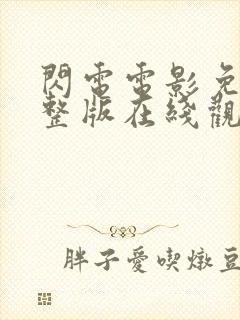 閃電電影免
整版在綫觀
胖子愛喫燉豆